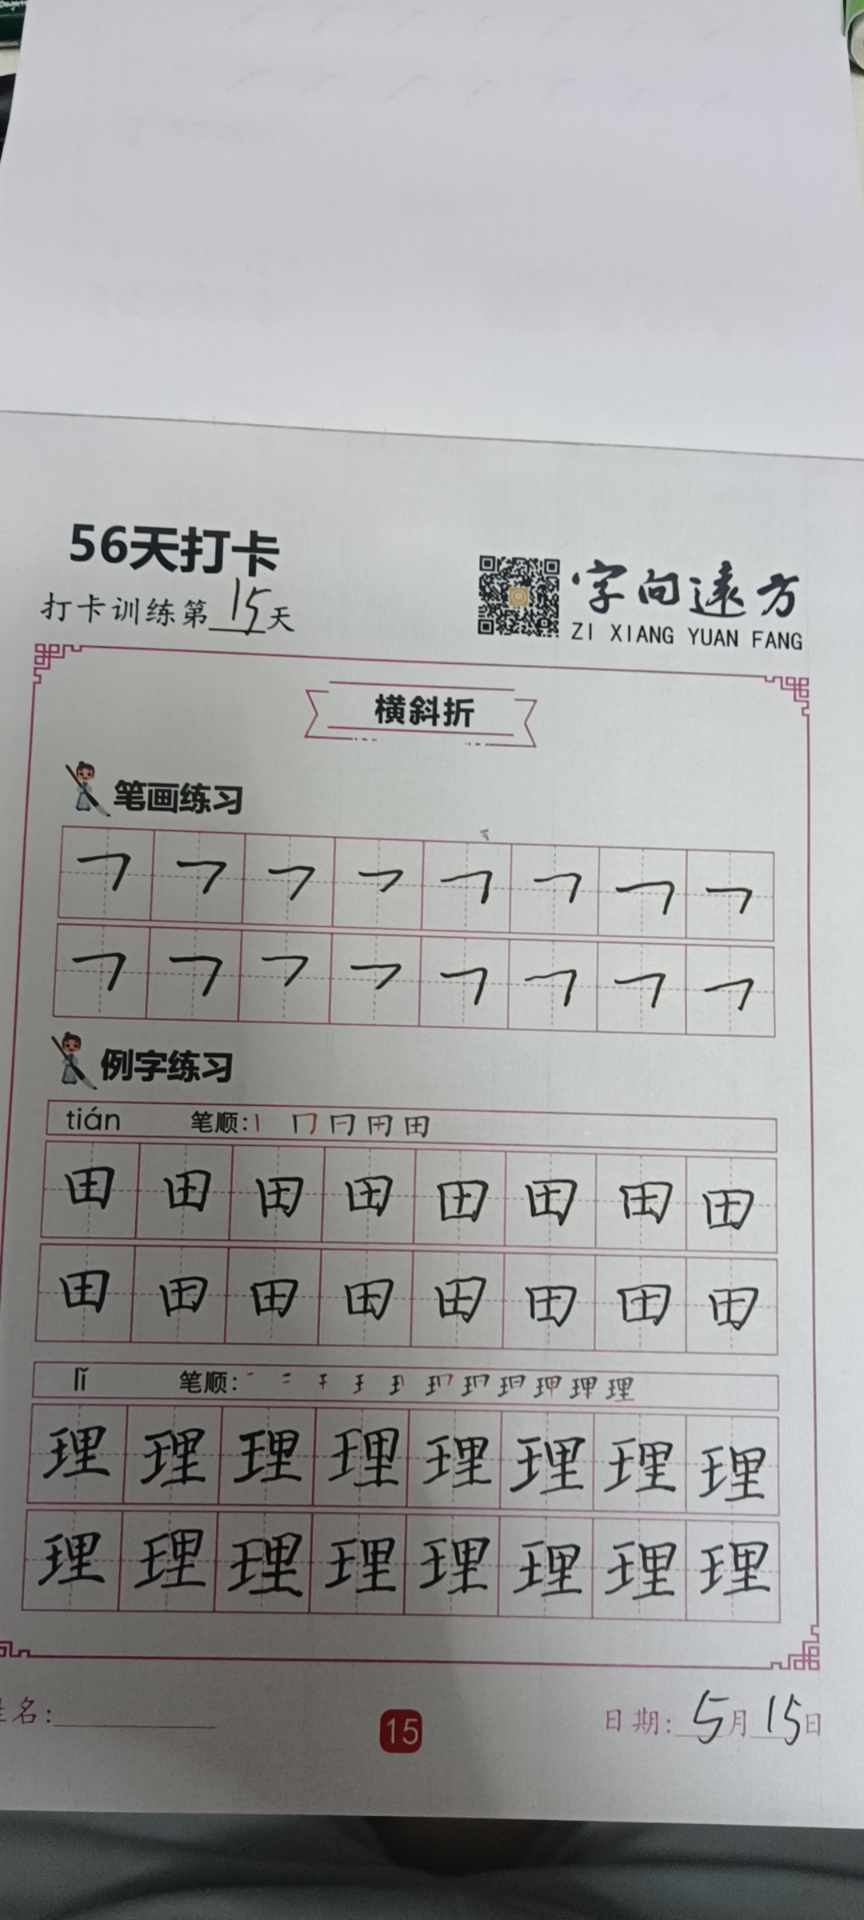 56天打卡
打卡训练第15天
字向远方
ZI XIANG YUAN FANG
横斜折
笔画练习
㇇ ㇇ ㇇ ㇇ ㇇ ㇇ ㇇ ㇇
㇇ ㇇ ㇇ ㇇ ㇇ ㇇ ㇇ ㇇
例字练习
tián 笔顺:
田 田 田 田 田 田 田 田
田 田 田 田 田 田 田 田
lǐ 笔顺:
理 理 理 理 理 理 理 理
理 理 理 理 理 理 理 理
姓名:
15
日期: 5月15日